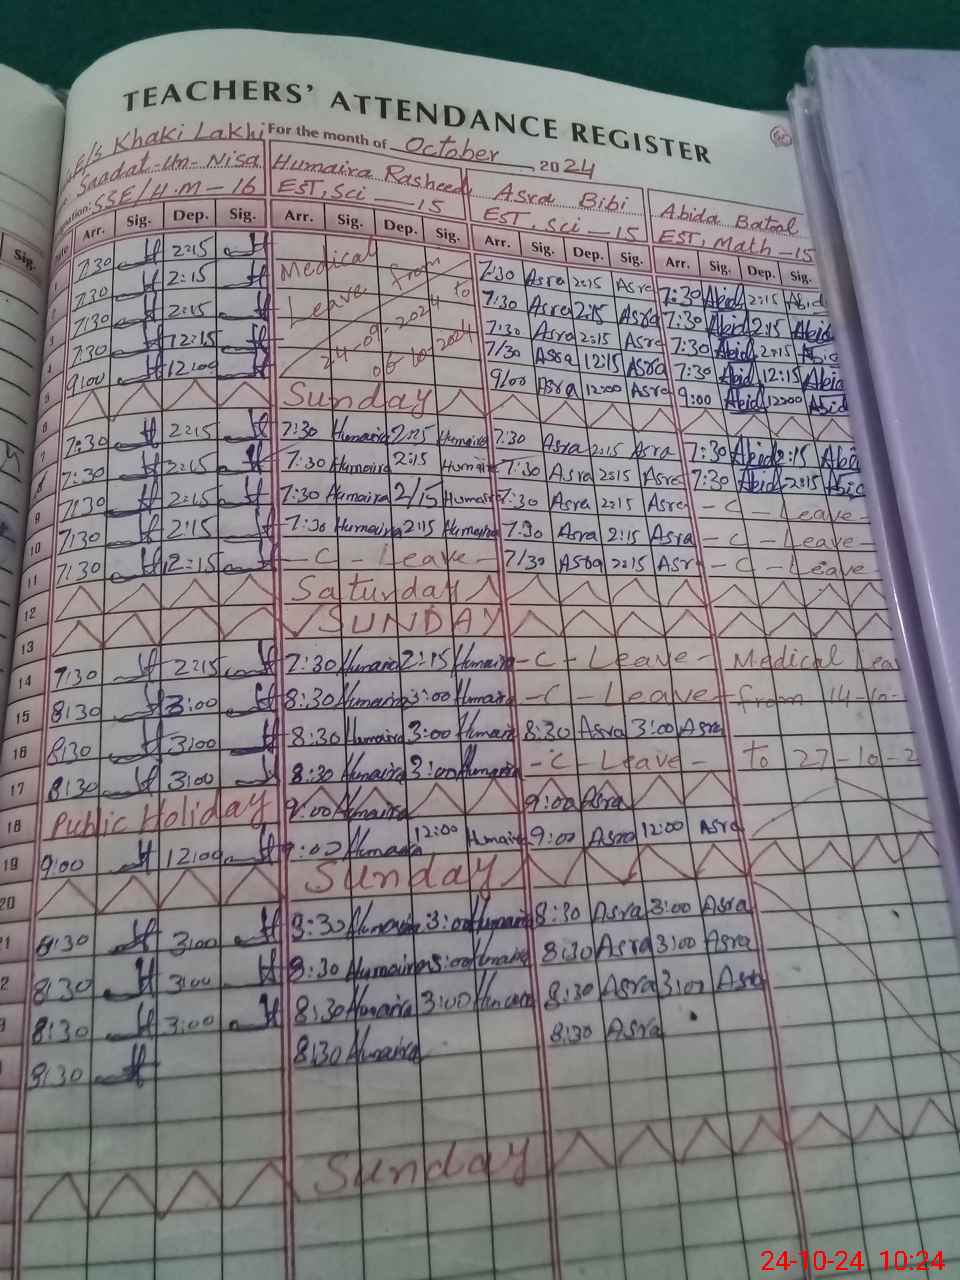 TEACHERS' ATTENDANCE REGISTER
E/s Khaki Lakhi For the month of October 2024
Saadat-Un-Nisa Humaira Rasheed Asra Bibi Abida Batool
SSE/H.M-16 EST, Sci — 15 EST, Sci — 15 EST, Math - 15
Arr. Sig. Dep. Sig. Arr. Sig. Dep. Sig. Arr. Sig. Dep. Sig. Arr. Sig. Dep. Sig.
7:30 2:15 Medical from 7:30 Asra 2:15 Asra 7:30 Abid 2:15 Abid
7:30 2:15 Leave to 7:30 Asra 2:15 Asra 7:30 Abid 2:15 Abid
7:30 2:15 24-09-2024 7:30 Asra 2:15 Asra 7:30 Abid 2:15 Abid
7:30 12:15 7/30 Asra 12:15 Asra 7:30 Abid 12:15 Abid
5 9:00 12:00 9/00 Asra 12:00 Asra 9:00 Abid 12:00 Abid
6 Sunday
7 7:30 2:15 7:30 Humaira 2:15 Humaira 7:30 Asra 2:15 Asra 7:30 Abid 2:15 Abid
7:30 2:15 7:30 Humaira 2:15 Humaira 7:30 Asra 2:15 Asra 7:30 Abid 2:15 Abid
9 7:30 2:15 7:30 Humaira 2/15 Humaira 7:30 Asra 2:15 Asra - C - Leave -
10 7:30 2:15 7:30 Humaira 2:15 Humaira 7:30 Asra 2:15 Asra - C - Leave -
11 7:30 2:15 - C - Leave - 7/30 Asra 2:15 Asr - C - Leave -
12 Saturday
13 SUNDAY
14 7:30 2:15 7:30 Humaira 2:15 Humaira - C - Leave - Medical Lea
15 8:30 3:00 8:30 Humaira 3:00 Humaira - C - Leave - from 14-10-
16 8:30 3:00 8:30 Humaira 3:00 Humaira 8:30 Asra 3:00 Asra
17 8:30 3:00 8:30 Humaira 3:00 Humaira - C - Leave - to 27-10-2
18 Public Holiday 9:00 Humaira 9:00 Asra
19 9:00 12:00 9:00 Humaira 12:00 Humaira 9:00 Asra 12:00 Asra
20 Sunday
8:30 3:00 8:30 Humaira 3:00 Humaira 8:30 Asra 3:00 Asra
8:30 3:00 8:30 Humaira 3:00 Humaira 8:30 Asra 3:00 Asra
8:30 3:00 8:30 Humaira 3:00 Humaira 8:30 Asra 3:00 Asra
8:30 8:30 Humaira 8:30 Asra
Sunday
24-10-24 10:24